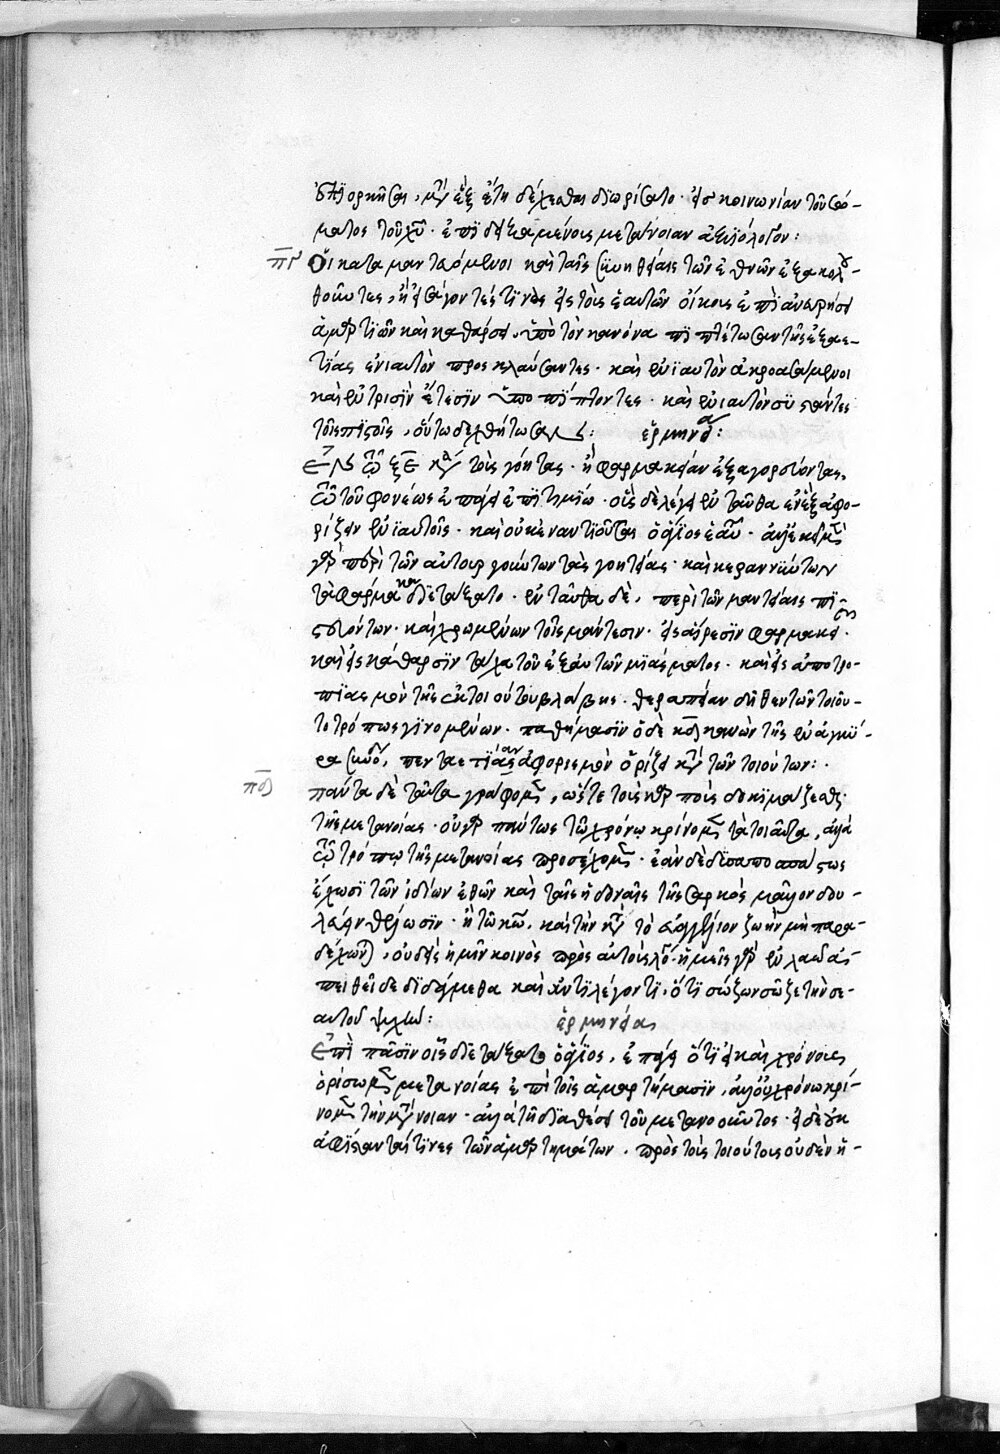 ἐπιορκῆσαι, μετὰ ἓξ ἔτη δέχεσθαι διωρίσατο· εἰς κοινωνίαν τοῦ σώ-
ματος τοῦ χῦ· ἐπιδειξαμένοις μετάνοιαν ἀξιόλογον:
πγ Οἱ καταμαντευόμενοι καὶ ταῖς συνηθείαις τῶν ἐθνῶν ἐξακολου-
θοῦντες, ἢ εἰσάγοντές τινας εἰς τοὺς ἑαυτῶν οἴκους ἐπὶ ἀνευρέσει
καὶ καθάρσει, ὑπὸ τὸν κανόνα πιπτέτωσαν τῆς ἑξαε-
τίας ἐνιαυτὸν προσκλαύσαντες· καὶ ἐνιαυτὸν ἀκροασάμενοι
καὶ ἐν τρισὶν ἔτεσιν ὑποπίπτοντες· καὶ ἐνιαυτὸν συστάντες
τοῖς πιστοῖς, οὕτω δεχθήτωσαν: ἑρμηνεία:
τοὺς γόητας· ἢ φαρμακείαν ἐξαγορεύοντας,
τοῦ φονέως ἐπάγει ἐπιτιμίω· οὓς δὲ λέγει ἐνταῦθα ἐν ἓξ ἀφο-
ρίζειν ἐνιαυτοῖς· καὶ οὐκ ἐναντιοῦται ὁ ἅγιος ἑαυτῶ·
γὰρ περὶ τῶν αὐτουργούντων τὰς γοητείας· καὶ κεραννύντων
τὰ φάρμακα διετάξατο· ἐνταῦθα δὲ, περὶ τῶν μαντείαις πι-
στευόντων· καὶ χρωμένων τοῖς μάντεσιν· εἰς αἵρεσιν φαρμακειῶν·
καὶ εἰς κάθαρσιν τάχα τοῦ ἐξ αὐτῶν μιάσματος· καὶ εἰς ἀποτρο-
πιασμὸν τῆς ἐκ τοιούτου βλάβης· θεραπείαν δῆθεν τῶν τοιού-
τοτρόπως γινομένων· παθημάσιν ὁ δὲ κδ κανὼν τῆς ἐν ἀγκύ-
ρα συνόδου, πενταετίας ἀφορισμὸν ὁρίζει κατὰ τῶν τοιούτων:
πδ πάντα δὲ ταῦτα γράφομεν, ὥστε τοὺς καρποὺς δοκιμάζεσθαι
τῆς μετανοίας· οὐ γὰρ πάντως τῶ χρόνω κρίνομεν τὰ τοιαῦτα, ἀλλὰ
τῶ τρόπω τῆς μετανοίας προσέχομεν· ἐὰν δὲ δυσαποσπάστως
ἔχωσι τῶν ἰδίων ἐθῶν καὶ ταῖς ἡδοναῖς τῆς σαρκὸς μᾶλλον δου-
λεύειν θέλωσιν· ἢ τῶ κω, καὶ τὴν κατὰ τὸ εὐαγγέλιον ζωὴν μὴ παρα-
δέχωνται, οὐδεὶς ἡμῖν κοινὸς πρὸς αὐτοὺς λόγος· ἡμεῖς γὰρ ἐν λαῶ ἀ-
πειθεῖ δεδιδάγμεθα καὶ ἀντιλέγοντι, ὅτι σώζων σῶζε τὴν σε-
αυτοῦ ψυχὴν: ἑρμηνεία
ἐπὶ πᾶσιν οἷς διετάξατο ὁ ἅγιος, ἐπάγει ὅτι εἰ καὶ χρόνους
ὁρίσωμεν μετανοίας ἐπὶ τοῖς ἁμαρτήμασιν, ἀλλ' οὐ χρόνω κρί-
νομεν τὴν μετάνοιαν· ἀλλὰ τῆ διαθέσει τοῦ μετανοοῦντος· εἰ δὲ οὐκ
ἀφίσταντάι τινες τῶν ἁμαρτημάτων, πρὸς τοὺς τοιούτους οὐδὲν ἡ-